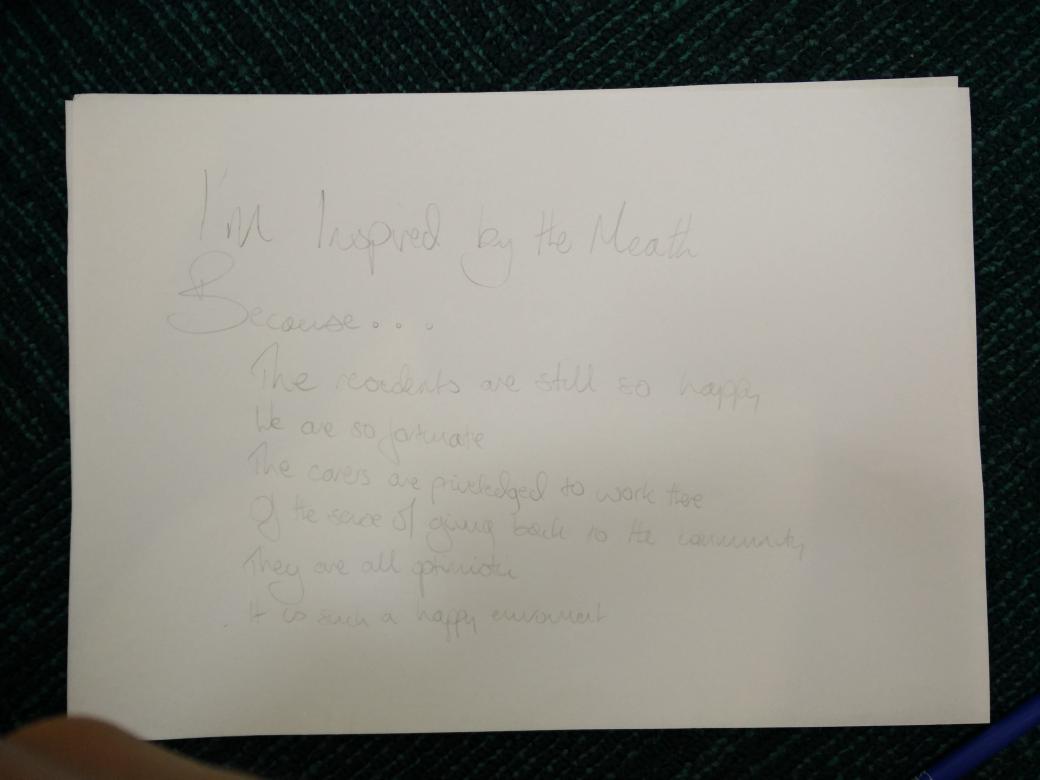 I'm Inspired by the Meath
Because...
The residents are still so happy
We are so fortunate
The carers are priveledged to work there
Of the sense of giving back to the community
They are all optimistic
It is such a happy enviroment